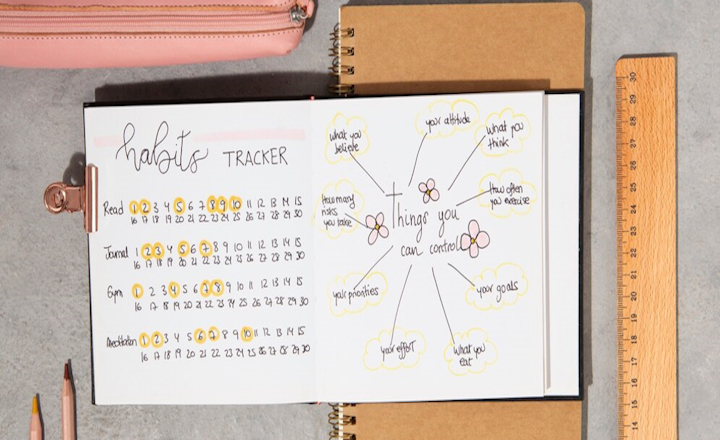 habits TRACKER
Read 1 2 3 4 5 6 7 8 9 10 11 12 13 14 15
16 17 18 19 20 21 22 23 24 25 26 27 28 29 30
Journal 1 2 3 4 5 6 7 8 9 10 11 12 13 14 15
16 17 18 19 20 21 22 23 24 25 26 27 28 29 30
Gym 1 2 3 4 5 6 7 8 9 10 11 12 13 14 15
16 17 18 19 20 21 22 23 24 25 26 27 28 29 30
Meditation 1 2 3 4 5 6 7 8 9 10 11 12 13 14 15
16 17 18 19 20 21 22 23 24 25 26 27 28 29 30
Things you
can control
what you
believe
your attitude
What you
think
How often
you exercise
your goals
What you
eat
your effort
your priorities
How many
risks
you take
30
29
28
27
26
25
24
23
22
21
20
19
18
17
16
15
14